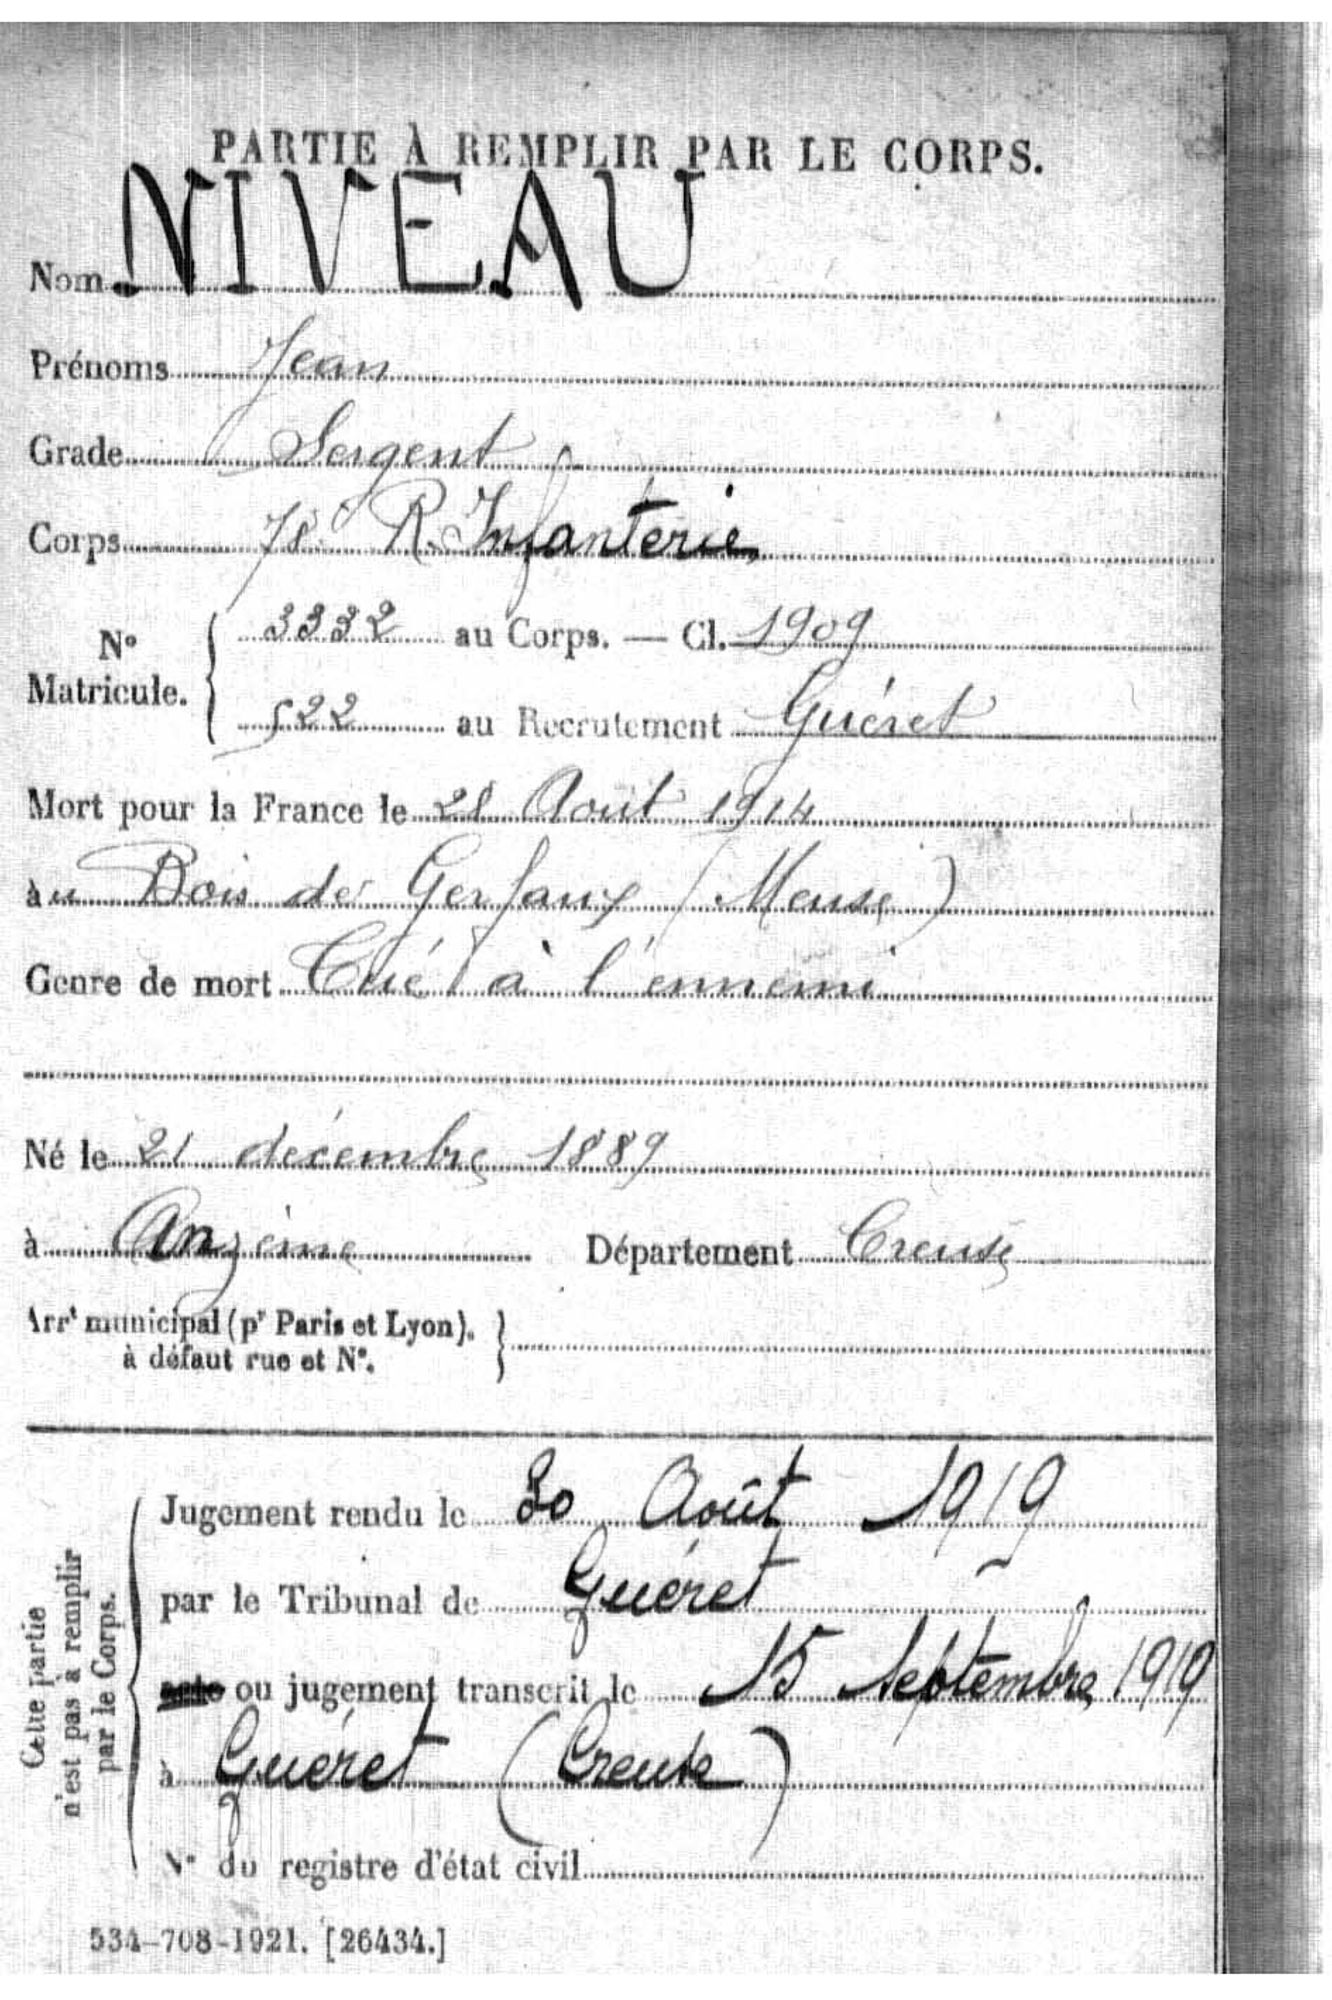 PARTIE À REMPLIR PAR LE CORPS.
Nom NIVEAU
Prénoms Jean
Grade Sergent
Corps 78e R. Infanterie
N° Matricule. { 3332 au Corps. — Cl. 1909
522 au Recrutement Guéret
Mort pour la France le 28 Août 1914
au Bois de Gerfaux (Meuse)
Genre de mort Tué à l'ennemi
Né le 21 décembre 1889
à Anzème Département Creuse
Arrt municipal (pr Paris et Lyon),
à défaut rue et N°. }
Cette partie
n'est pas à remplir
par le Corps.
Jugement rendu le 30 Août 1919
par le Tribunal de Guéret
acte ou jugement transcrit le 15 Septembre 1919
à Guéret (Creuse)
N° du registre d'état civil
534-708-1921. [26434.]